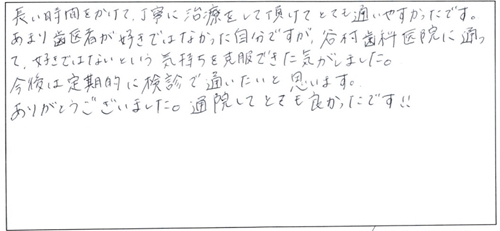 長い時間をかけて、丁寧に治療をして頂けてとても通いやすかったです。
あまり歯医者が好きではなかった自分ですが、谷村歯科医院に通っ
て、好きではないという気持ちを克服できた気がしました。
今後は定期的に検診で通いたいと思います。
ありがとうございました。通院してとても良かったです!!